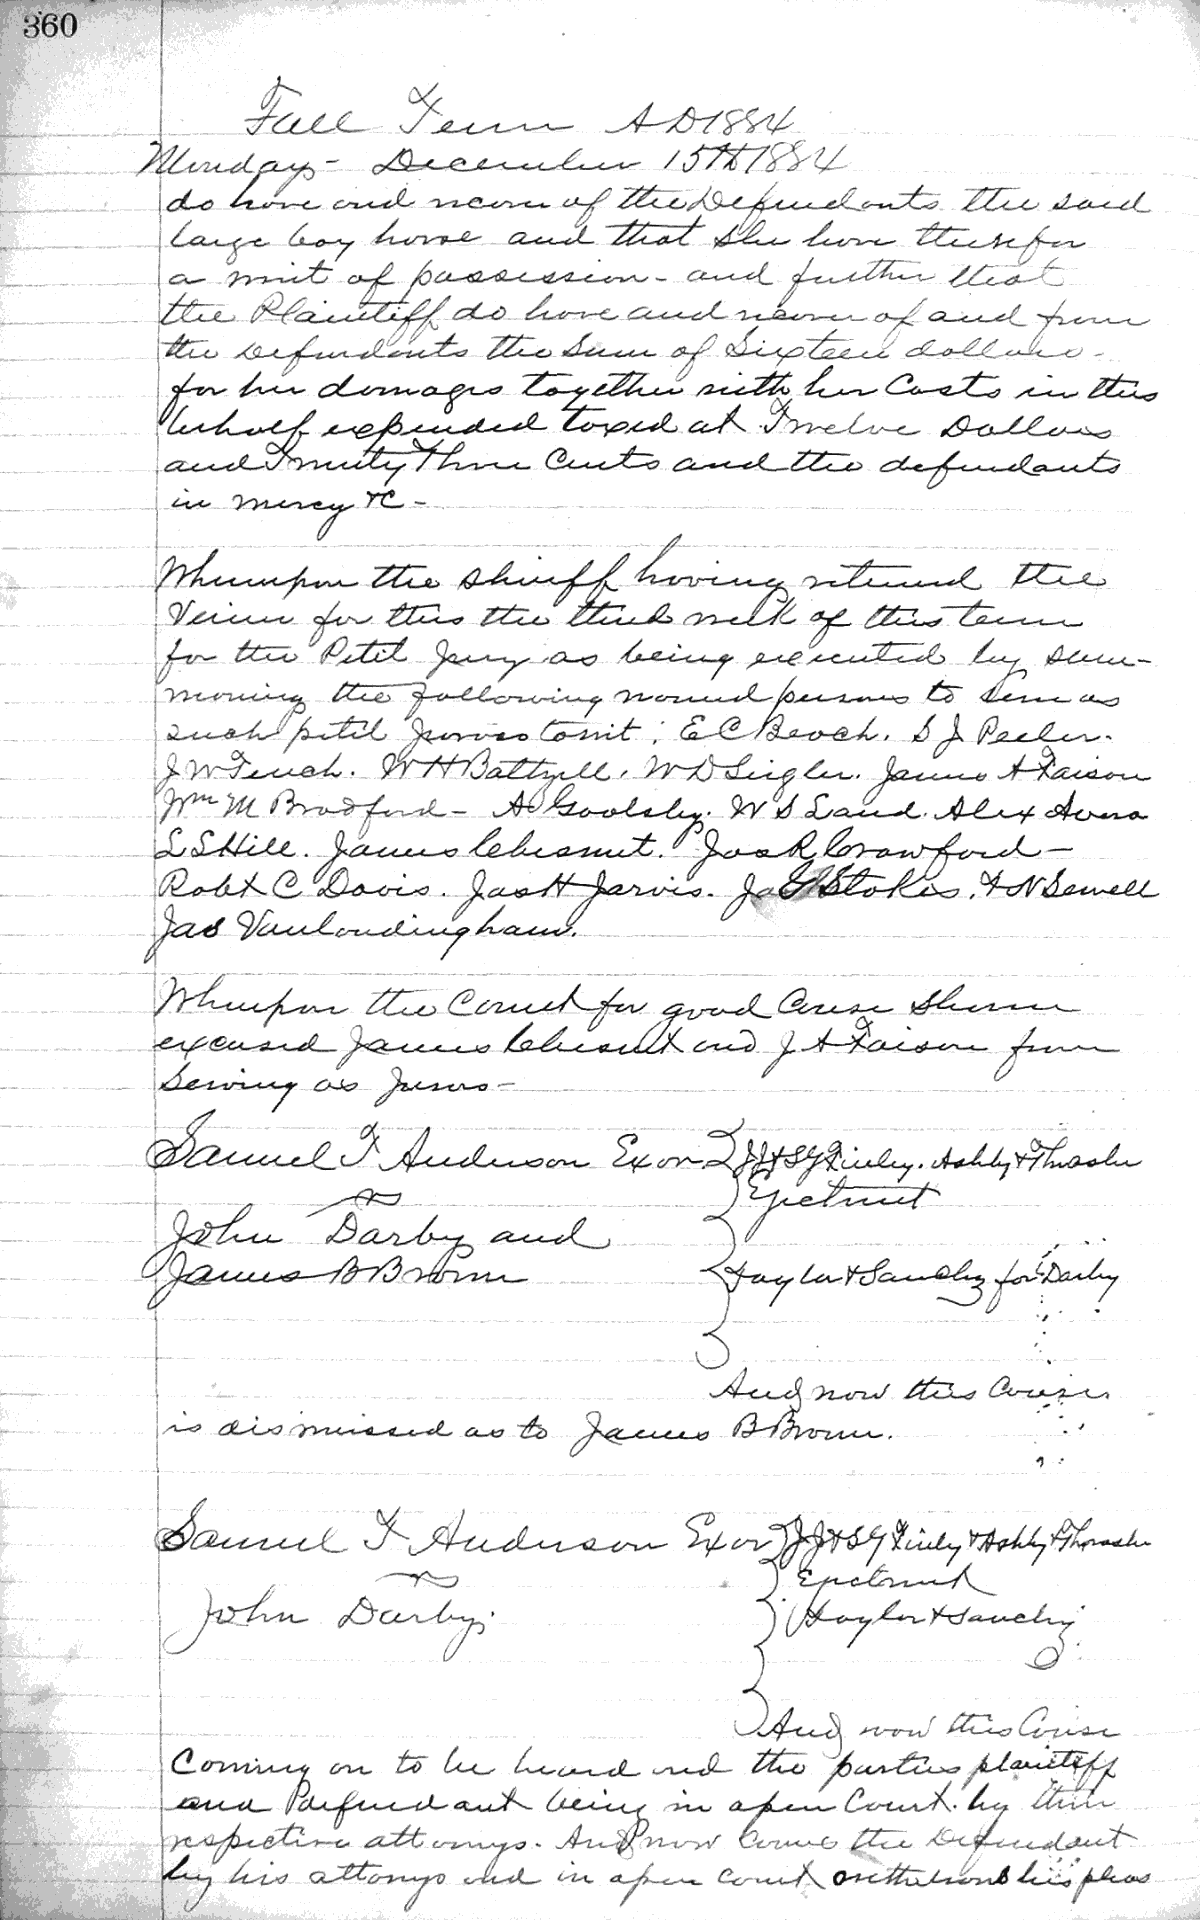 360
Fall Term A D 1884
Monday - December 15th 1884
do have and recover of the Defendants the said
large bay horse and that she have therefor
a writ of possession - and further that
the Plaintiff do have and recover of and from
the Defendants the Sum of Sixteen dollars -
for her damages together with her Costs in this
behalf expended taxed at Twelve Dollars
and Twenty Three Cents and the defendants
in mercy &C -
Whereupon the Sheriff having returned the
Venire for this the third week of this term
for the Petit Jury as being executed by sum-
moning the following named persons to serve as
such petit jurors to wit; E C Beach. S J Peeler.
J W Teuch. W H Baltzell. W D Sigler. James A Faison
Wm M Bradford - A Goolsby. W S Land. Alex Avera
L S Hill. James Chesnut. Jas R Crawford -
Robt C Davis. Jas H Jarvis. Ja G Stokes. F N Sewell
Jas Vanlandingham.
Whereupon the Court for good Cause Shown
excused James Chesnut and J A Faison from
Serving as Jurors -
Samuel F Anderson Exor. J J & S Y Finley. Ashby & Thrasher
vs Ejectment
John Darby and
James B Brown Taylor & Sanchez for Darby
And now this Cause
is dismissed as to James B Brown.
Samuel F Anderson Exor J J & S Y Finley & Ashby & Thrasher
vs Ejectment
John Darby. Taylor & Sanchez
And now this Cause
Coming on to be heard and the parties plaintiff
and defendant being in open Court by their
respective attorneys. And now comes the Defendant
by his attorneys and in open court withdraws his pleas